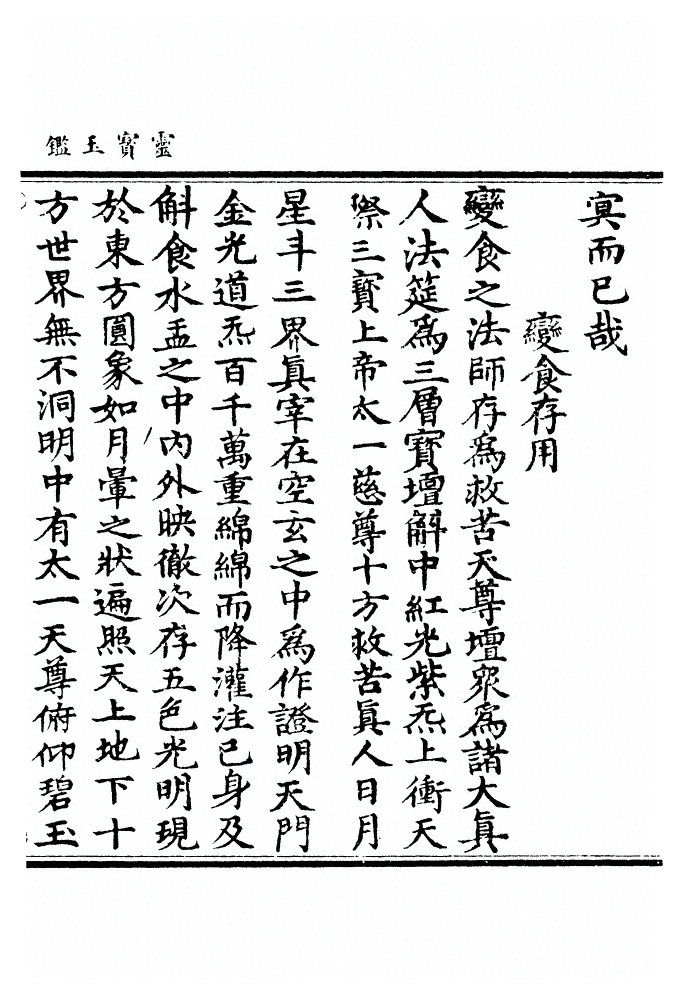 靈寳玉鑑
𡨋而已哉
變食存用
變食之法師存爲救苦天尊壇衆爲諸大眞
人法筵爲三層寳壇斛中紅光紫炁上衝天
際三寳上帝太一慈尊十方救苦眞人日月
星斗三界眞宰在空玄之中爲作證明天門
金光道炁百千萬重綿綿而降灌注已身及
斛食水盂之中内外映徹次存五色光明現
於東方圓象如月暈之狀遍照天上地下十
方世界無不洞明中有太一天尊俯仰碧玉